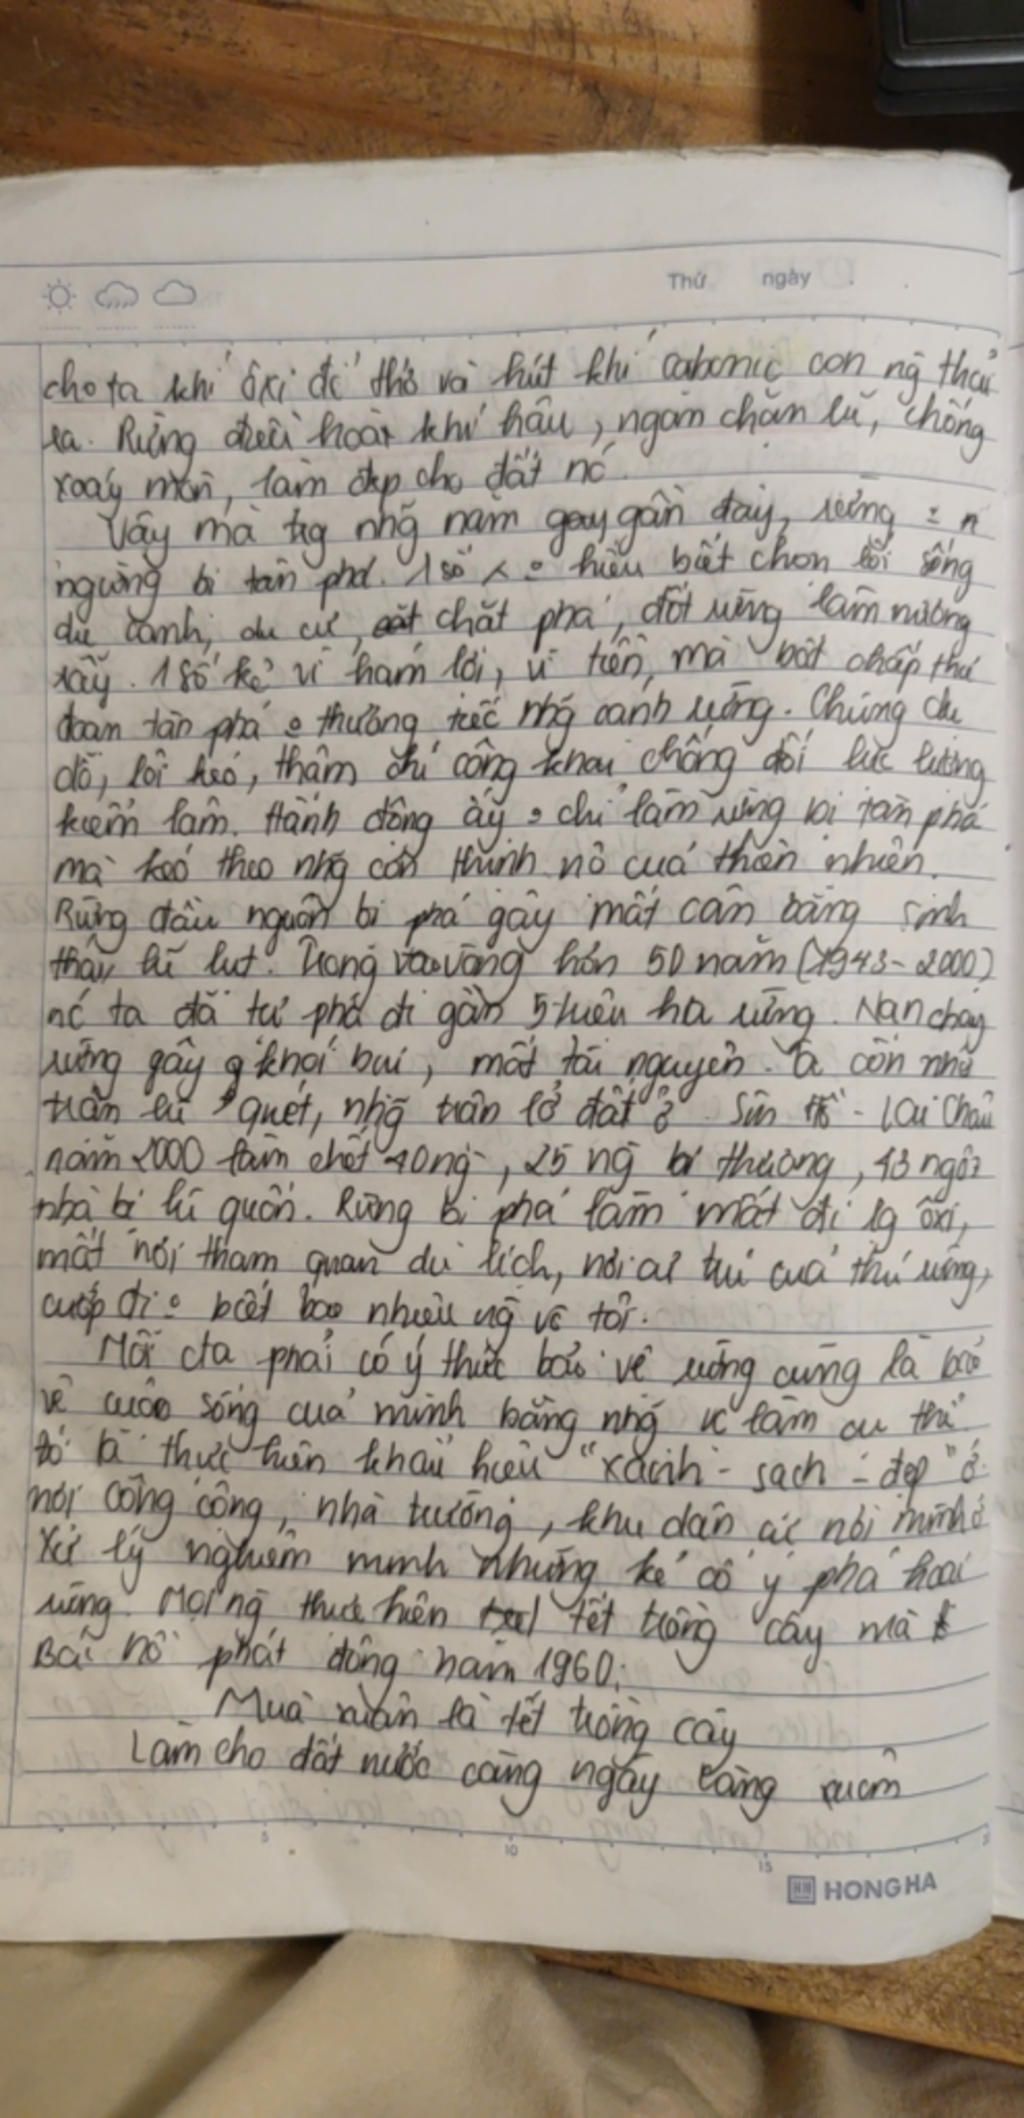 Thứ ngày
cho ta khí ôxi để thở và hút khí cabonic con ng thải
ra. Rừng điều hoà khí hậu, ngăn chặn lũ, chống
xoáy mòn, làm đẹp cho đất nc
Vậy mà trg nhg năm gần đây, rừng =
ngừng bị tàn phá. 1 số = hiểu biết chọn lối sống
du canh, du cư, chặt phá, đốt rừng làm nương
rẫy. 1 số kẻ vì ham lợi, vì tiền, mà bất chấp thủ
đoạn tàn phá thương tiếc nhg cánh rừng. Chúng dụ
dỗ, lôi kéo, thậm chí công khai chống đối lực lượng
kiểm lâm. Hành động ấy chỉ làm rừng bị tàn phá
mà kéo theo nhg cơn thịnh nộ của thiên nhiên.
Rừng đầu nguồn bị phá gây mất cân bằng sinh
thái lũ lụt. Trong vòng hơn 50 năm (1943-2000)
nc ta đã tự phá đi gần 5 triệu ha rừng. Nạn cháy
rừng gây khói bụi, mất tài nguyên. Ta còn nhớ
trận lũ quét, nhg trận lở đất ở Sìn Hồ - Lai Châu
năm 2000 làm chết 40 ng, 25 ng bị thương, 43 ngôi
nhà bị lũ cuốn. Rừng bị phá làm mất đi lg ôxi,
mất nơi tham quan du lịch, nơi cư trú của thú rừng,
cướp đi = biết bao nhiêu ng vô tội.
Mỗi cta phải có ý thức bảo vệ rừng cũng là bảo
vệ cuộc sống của mình bằng nhg vc làm cụ thể
đó là thực hiện khẩu hiệu "xanh - sạch - đẹp" ở
nơi công cộng, nhà trường, khu dân cư nơi mình ở
Xử lý nghiêm minh những kẻ cố ý phá hoại
rừng. Mọi ng thực hiện tết trồng cây mà
Bác Hồ phát động năm 1960:
Mùa xuân là tết trồng cây
Làm cho đất nước càng ngày càng xuân
5 10 15
HONG HA